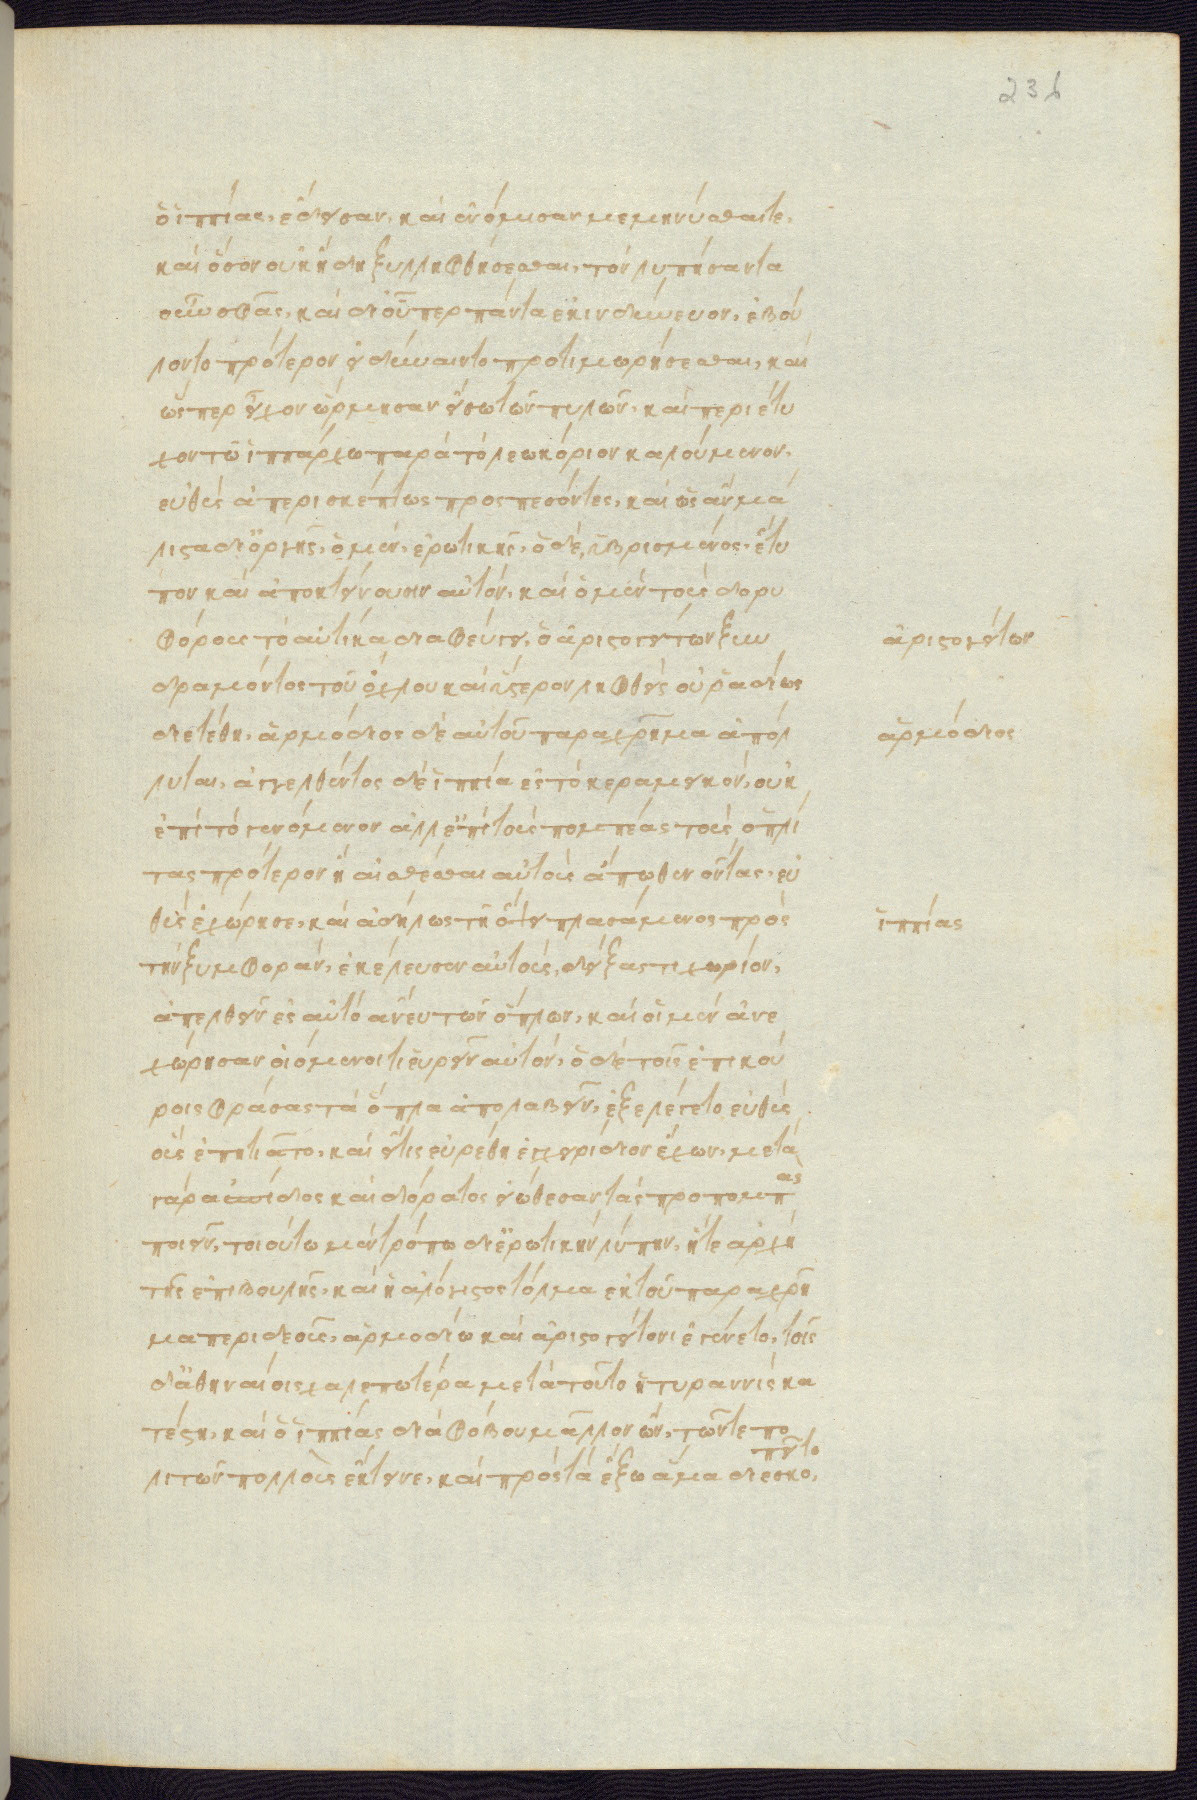 236
ὁ ἱππίας, ἔδεισαν, καὶ ἐνόμισαν μεμηνύσθαι τε,
καὶ ὅσον οὐκ ἤδη ξυλληφθήσεσθαι, τὸν λυπήσαντα
οὖν σφᾶς, καὶ δι' οὗπερ πάντα ἐκινδύνευον, ἐβού
λοντο πρότερον εἰ δύναιντο προτιμωρήσεσθαι, καὶ
ὥσπερ εἶχον ὥρμησαν εἴσω τῶν πυλῶν, καὶ περιέτυ
χον τῶ ἱππάρχω παρὰ τὸ λεωκόριον καλούμενον,
εὐθὺς ἀπερισκέπτως προσπεσόντες, καὶ ὡς ἂν μά
λιστα δι' ὀργῆς, ὁ μὲν, ἐρωτικῆς, ὁ δὲ, ὑβρισμένος, ἔτυ
πτον καὶ ἀποκτείνουσιν αὐτόν, καὶ ὁ μὲν τοὺς δορυ
φόρους τὸ αὐτίκα διαφεύγει, ὁ ἀριστογείτων ξυν
δραμόντος τοῦ ὄχλου καὶ ὕστερον ληφθεὶς οὐ ῥαδίως
διετέθη, ἁρμόδιος δὲ αὐτοῦ παραχρῆμα ἀπόλ
λυται, ἀγγελθέντος δὲ ἱππία ἐς τὸ κεραμεικόν, οὐκ
ἐπὶ τὸ γενόμενον ἀλλ' ἐπὶ τοὺς πομπέας τοὺς ὁπλί
τας πρότερον ἢ αἰσθέσθαι αὐτοὺς ἄπωθεν ὄντας, εὐ
θὺς ἐχώρησε, καὶ ἀδήλως τῆ ὄψει πλασάμενος πρὸς
τὴν ξυμφοράν, ἐκέλευσεν αὐτοὺς, δείξας τι χωρίον,
ἀπελθεῖν ἐς αὐτὸ ἄνευ τῶν ὅπλων, καὶ οἱ μὲν ἀνε
χώρησαν οἰόμενοί τι ἐυρεῖν αὐτόν, ὁ δὲ τοῖς ἐπικού
ροις φράσας τὰ ὅπλα ἀπολαβεῖν, ἐξελέγετο εὐθὺς
οὓς ἐπητιᾶτο, καὶ εἴ τις εὑρέθη ἐγχειρίδιον ἔχων, μετὰ
γὰρ ἀσπίδος καὶ δόρατος εἰώθεσαν τὰς προπομπὰς
ποιεῖν, τοιούτω μὲν τρόπω δι' ἐρωτικὴν λύπην, ἥ τε ἀρχὴ
τῆς ἐπιβουλῆς, καὶ ἡ ἀλόγιστος τόλμα ἐκ τοῦ παραχρῆ
μα περιδεοῦς, ἁρμοδίω καὶ ἀριστογείτονι ἐγένετο, τοῖς
δ' ἀθηναίοις χαλεπωτέρα μετὰ τοῦτο ἡ τυραννὶς κα
τέστη, καὶ ὁ ἱππίας διὰ φόβου μᾶλλον ὢν, τῶν τε πο
λιτῶν πολλοὺς ἔκτεινε, καὶ πρὸς τὰ ἔξω ἅμα διεσκοπεῖτο,
ἀριστογείτων
ἁρμόδιος
ἱππίας